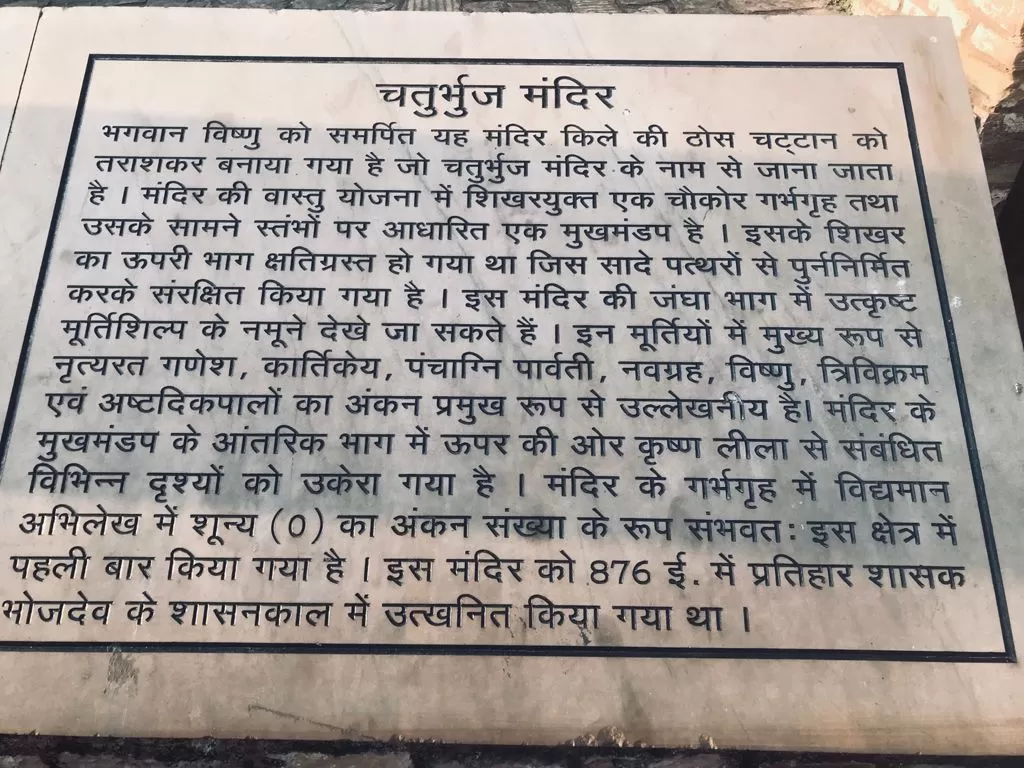 चतुर्भुज मंदिर
भगवान विष्णु को समर्पित यह मंदिर किले की ठोस चट्टान को
तराशकर बनाया गया है जो चतुर्भुज मंदिर के नाम से जाना जाता
है । मंदिर की वास्तु योजना में शिखरयुक्त एक चौकोर गर्भगृह तथा
उसके सामने स्तंभों पर आधारित एक मुखमंडप है । इसके शिखर
का ऊपरी भाग क्षतिग्रस्त हो गया था जिस सादे पत्थरों से पुर्ननिर्मित
करके संरक्षित किया गया है । इस मंदिर की जंघा भाग में उत्कृष्ट
मूर्तिशिल्प के नमूने देखे जा सकते हैं । इन मूर्तियों में मुख्य रूप से
नृत्यरत गणेश, कार्तिकेय, पंचाग्नि पार्वती, नवग्रह, विष्णु, त्रिविक्रम
एवं अष्टदिकपालों का अंकन प्रमुख रूप से उल्लेखनीय है। मंदिर के
मुखमंडप के आंतरिक भाग में ऊपर की ओर कृष्ण लीला से संबंधित
विभिन्न दृश्यों को उकेरा गया है । मंदिर के गर्भगृह में विद्यमान
अभिलेख में शून्य (0) का अंकन संख्या के रूप संभवतः इस क्षेत्र में
पहली बार किया गया है । इस मंदिर को 876 ई. में प्रतिहार शासक
भोजदेव के शासनकाल में उत्खनित किया गया था ।